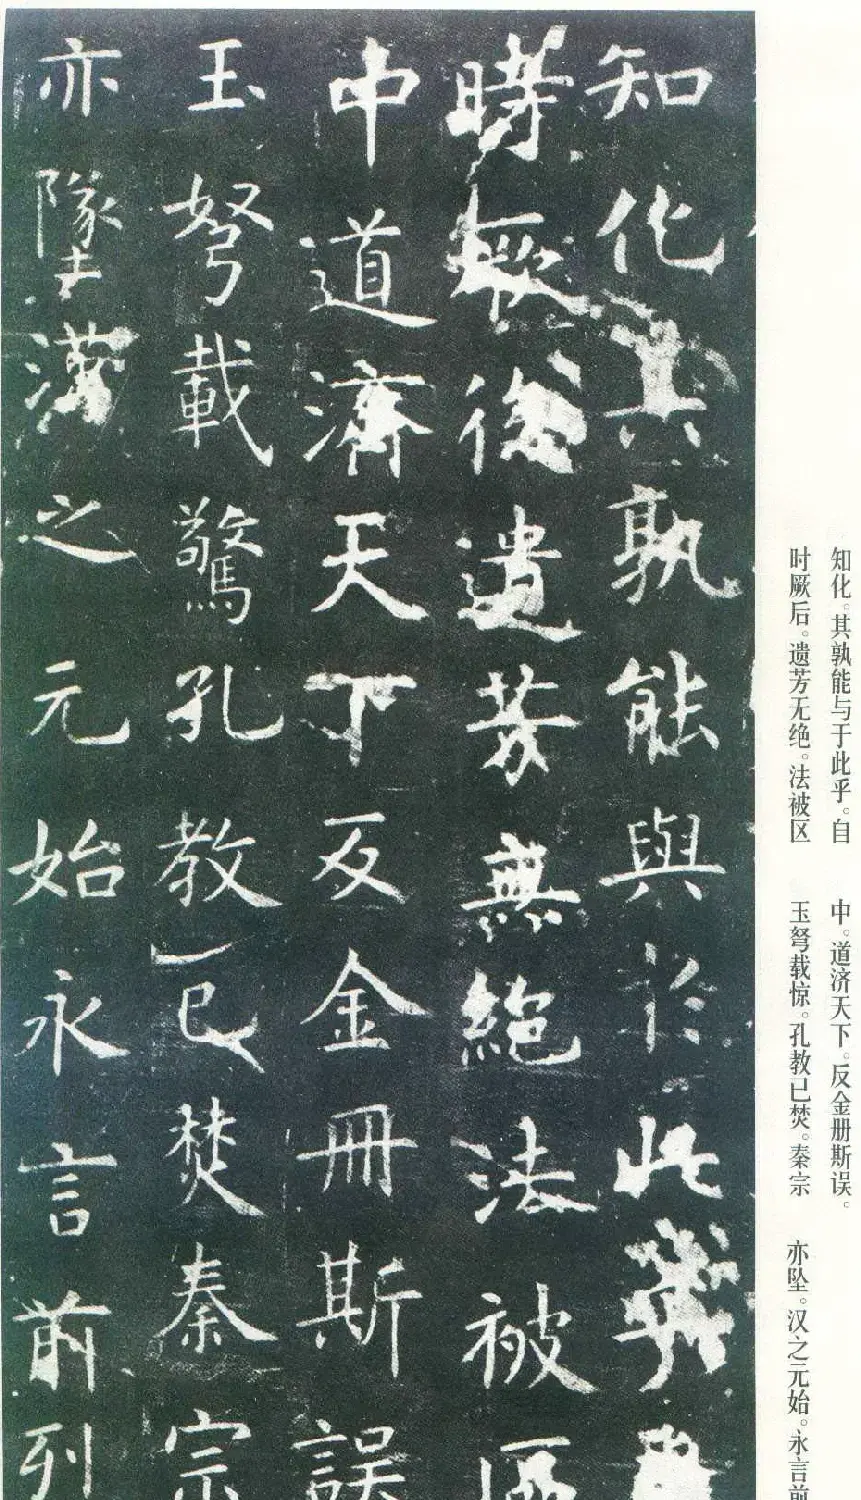 知化其孰能與於此乎自
時厥後遺芳無絕法被區
中道濟天下及金冊斯誤
玉弩載驚孔教已焚秦宗
亦墜漢之元始永言前列
知化。其孰能与于此乎。自
时厥后。遗芳无绝。法被区
中。道济天下。反金册斯误。
玉弩载惊。孔教已焚。秦宗
亦坠。汉之元始。永言前